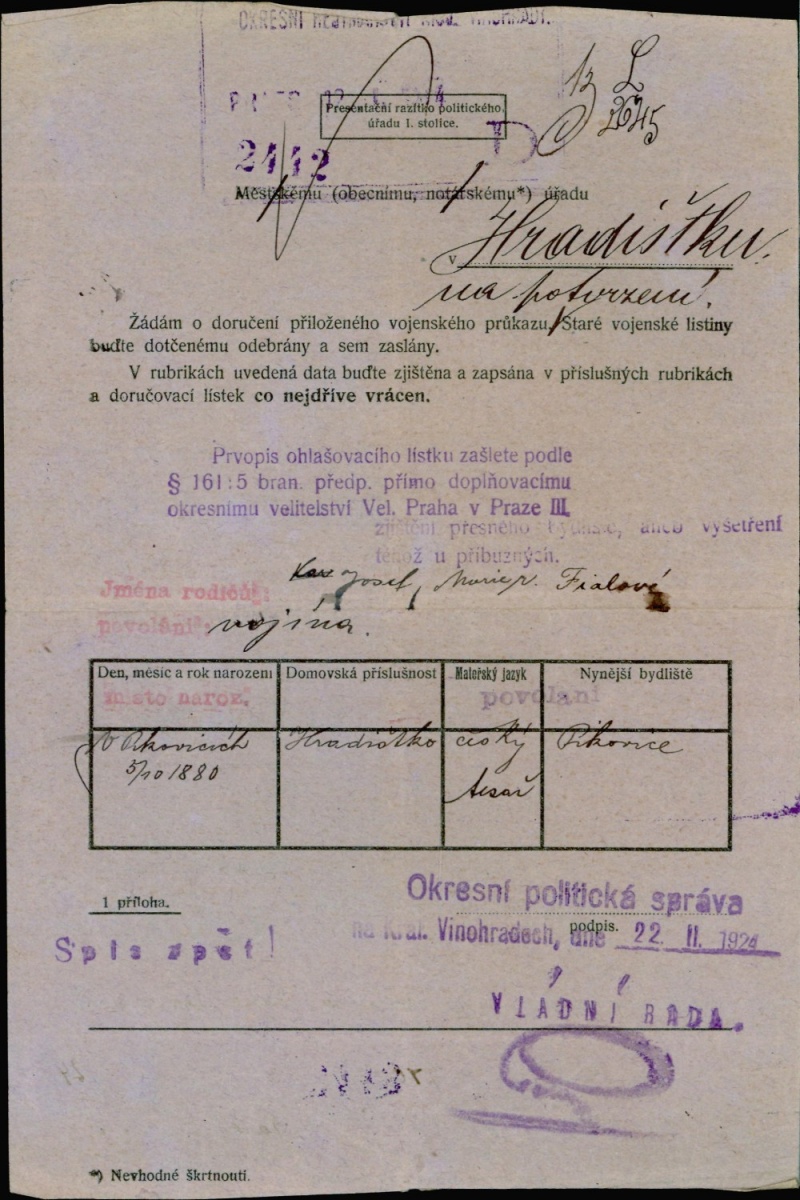 OKRESNÍ
13 L
2645
Presentační razítko politického
úřadu I. stolice.
2412
Městskému (obecnímu, notářskému*) úřadu
v Hradištku.
na potvrzení.
Žádám o doručení přiloženého vojenského průkazu. Staré vojenské listiny
buďte dotčenému odebrány a sem zaslány.
V rubrikách uvedená data buďte zjištěna a zapsána v příslušných rubrikách
a doručovací lístek co nejdříve vrácen.
Prvopis ohlašovacího lístku zašlete podle
§ 161:5 bran. předp. přímo doplňovacímu
okresnímu velitelství Vel. Praha v Praze III.
zjištění přesného bydliště, aneb vyšetření
téhož u příbuzných.
Jména rodičů: Josef, Marie r. Fialová
povolání: vojína.
Den, měsíc a rok narození Domovská příslušnost Mateřský jazyk Nynější bydliště
místo naroz. povolání
v Pikovicích Hradištko český Pikovice
5/10 1880
tesař
1 příloha.
Okresní politická správa
podpis.
na Král. Vinohradech, dne 22. II. 1924
Spis zpět!
VLÁDNÍ RADA.
*) Nevhodné škrtnouti.